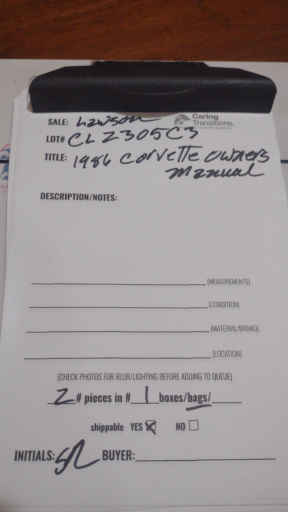 SALE: Lawson
Caring
Transitions
LOT# CL2305C3
TITLE: 1986 Corvette owners
manual
DESCRIPTION/NOTES:
(MEASUREMENTS)
(CONDITION)
(MATERIAL/BRAND)
(LOCATION)
(CHECK PHOTOS FOR BLUR/LIGHTING BEFORE ADDING TO QUEUE)
2 # pieces in # 1 boxes/bags/
shippable YES ☒ NO ☐
INITIALS: BUYER: